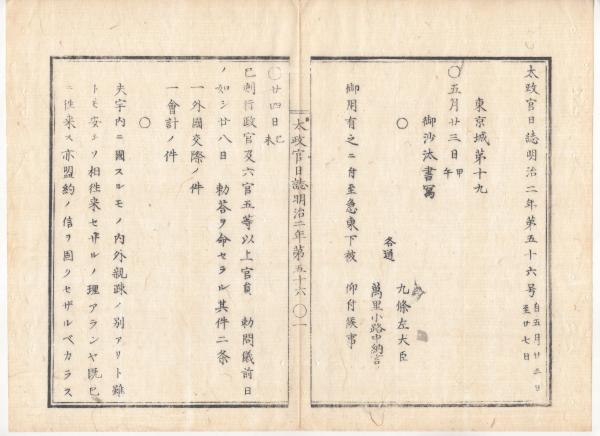 太政官日誌明治二年第五十六号 自五月廿三日 至廿七日
東京城第十九
○五月廿三日 甲午
御沙汰書寫
○
各通
九條左大臣
萬里小路中納言
御用有之ニ付至急東下被 仰付候事
太政官日誌明治二年第五十六 ○一
○廿四日 乙未
巳刻行政官及六官五等以上官員 勅問議前日
ノ如シ廿八日 勅答ヲ命セラル其件二条
一外國交際ノ件
一會計ノ件
○
夫宇内ニ國スルモノ内外親疎ノ別アリト雖
トモ安ニソ相往来セザルノ理アランヤ既已
ニ往来ス亦盟約ノ信ヲ固クセザルベカラス